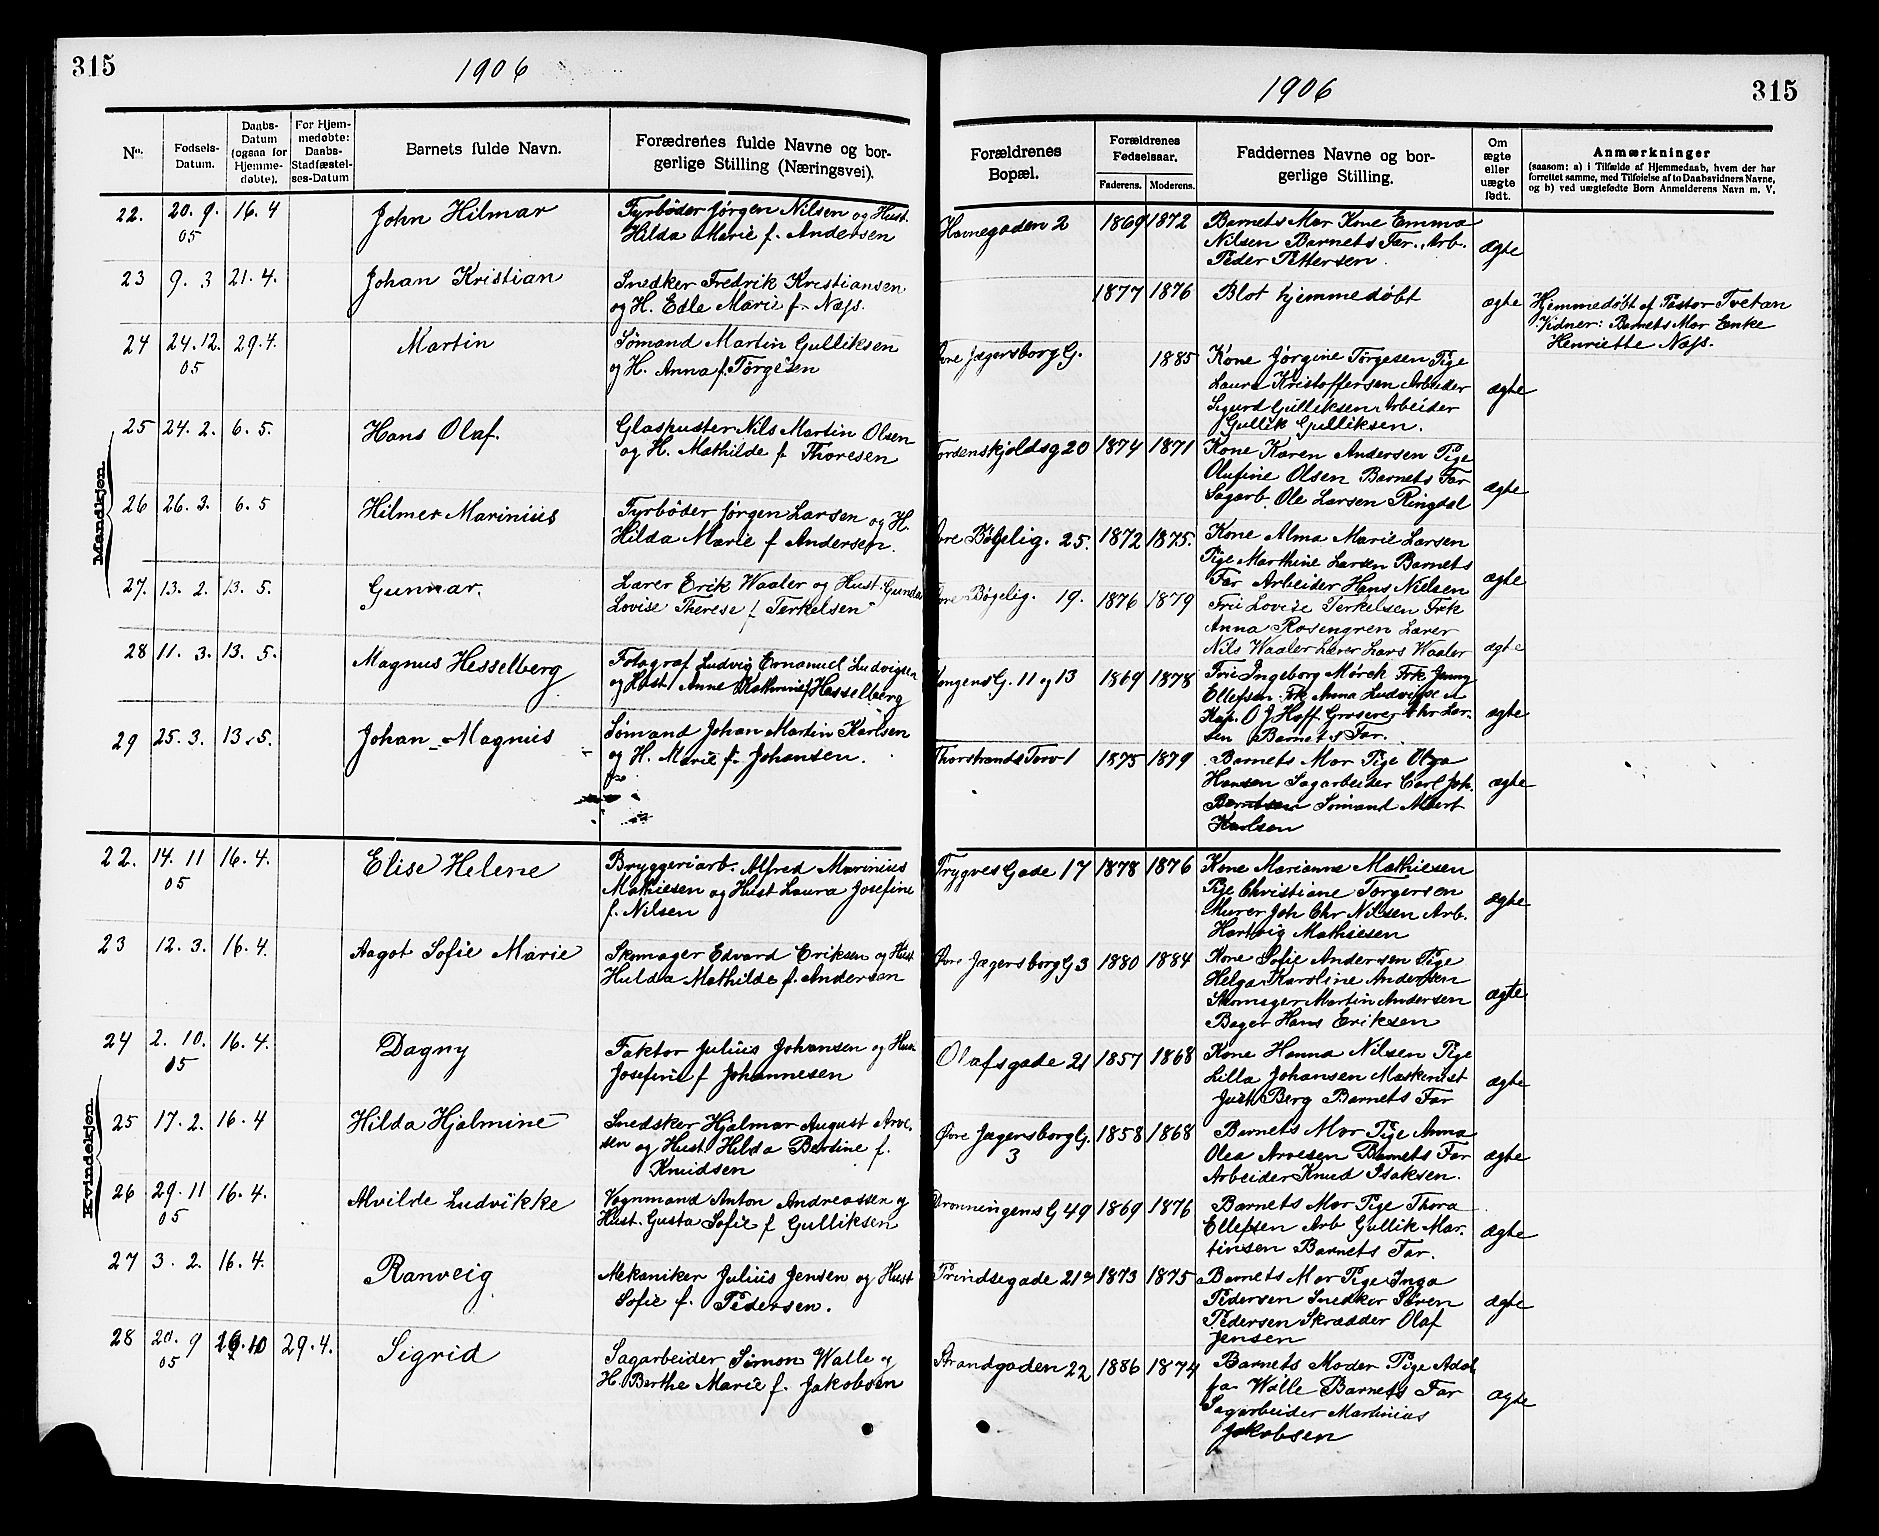 315
1906
No.
Fødsels-
Datum.
Daabs-
Datum
(ogsaa for
Hjemme-
døbte).
For Hjem-
medøbte:
Daabs-
Stadfæstel-
ses-Datum
Barnets fulde Navn.
Forædrenes fulde Navne og bor-
gerlige Stilling (Næringsvei).
Mandkjøn.
22. 20. 9. 05 16. 4 John Hilmar
Fyrbøder Jørgen Nilsen og Hust.
Hilda Marie f. Andersen
23 9. 3 21. 4. Johan Kristian
Snedker Fredrik Kristiansen
og H. Edle Marie f. Næss.
24 24. 12. 05 29. 4. Martin
Sømand Martin Gulliksen
og H. Anna f. Torgesen
25 24. 2. 6. 5. Hans Olaf.
Glaspuster Nils Martin Olsen
og H. Mathilde f Thoresen
26 26. 3. 6. 5 Hilmer Marinius
Fyrbøder Jørgen Larsen og H.
Hilda Marie f Andersen.
27. 13. 2. 13. 5. Gunnar.
Lærer Erik Waaler og Hust. Gunda
Lovise Therese f Terkelsen
28 11. 3. 13. 5. Magnus Hesselberg
Fotograf Ludvig Emanuel Ludvigsen
og Hust Anne Kathrine f Hesselberg
29 25. 3. 13. 5. Johan Magnus
Sømand Johan Martin Karlsen
og H. Marie f. Johansen.
Kvindekjøn.
22. 14. 11 05 16. 4. Elise Helene
Bryggeriarb. Alfred Marinius
Mathiesen og Hust Laura Josefine
f. Nilsen
23 12. 3. 16. 4. Aagot Sofie Marie
Skomager Edvard Eriksen og Hust
Hulda Mathilde f. Andersen
24 2. 10. 05 16. 4. Dagny
Faktor Julius Johansen og Hus.
Josefine f Johannesen
25 17. 2. 16. 4 Hilda Hjalmine
Snedsker Hjalmar August Arve-
sen og Hust Hilda Bertine f.
Knudsen
26 29. 11 05 16. 4. Alvilde Ludvikke
Vognmand Anton Andreassen og
Hust. Gusta Sofie f Gulliksen
27 3. 2. 16. 4. Ranveig
Mekaniker Julius Jensen og Hust
Sofie f. Pedersen.
28 20. 9 05 10 29. 4. Sigrid
Sagarbeider Simon Walle og
H. Berthe Marie f. Jakobsen
1906
315
Forældrenes
Bopæl.
Forældrenes
Fødselsaar.
Faderens. Moderens.
Faddernes Navne og bor-
gerlige Stilling.
Om
ægte
eller
uægte
født.
Anmærkninger
(saasom: a) i Tilfælde af Hjemmedaab, hvem der har
forrettet samme, med Tilføielse af to Daabsvidners Navne,
og b) ved uægtefødte Børn Anmelderens Navn m. V.
Havnegaden 2 1869 1872
Barnets Mor Kone Emma
Nilsen Barnets Far. Arb.
Peder Pettersen. ægte
1877 1876 Blot hjemmedøbt ægte
Hjemmedøbt af Pastor Tvetan
Vidner: Barnets Mor Enke
Henriette Næss.
Øvre Jægersborg G. 1885
Kone Jørgine Torgesen Pige
Laura Kristoffersen Arbeider
Sigurd Gulliksen Arbeider
Gullik Gulliksen. ægte
Tordenskjoldsg 20 1874 1871
Kone Karen Andersen Pige
Olufine Olsen Barnets Far
Sagarb. Ole Larsen Ringdal ægte
Øvre Bøgelig. 25. 1872 1875.
Kone Alma Marie Larsen
Pige Marthine Larsen Barnets
Far Arbeider Hans Nielsen ægte
Øvre Bøgelig. 19. 1876 1879
Frü Lovise Terkelsen Frk
Anna Rosengren Lærer
Nils Waaler Lærer Lars Waaler ægte
Kongens G. 11 og 13 1869 1878
Frü Ingeborg Mørch Frk Jenny
Ellefsen. Frk Anna Ludvigsen
Kap. O J Hoff Groserer Chr Lar-
sen Barnets Far. ægte
Thorstrands Torv 1 1875 1879
Barnets Mor Pige Olga
Hansen Sagarbeider Carl Joh.
Berntsen Sømand Albert
Karlsen ægte
Trygves Gade 17 1878 1876
Kone Marianne Mathiesen
Pige Christiane Torgersen
Murer Joh Chr Nilsen Arb.
Hartvig Mathiesen ægte
Øvre Jægersborg G 3 1880 1884
Kone Sofie Andersen Pige
Helga Karoline Andersen
Skomager Martin Andersen
Bager Hans Eriksen ægte
Olafsgade 21 1857 1868
Kone Hanna Nilsen Pige
Lilla Johansen Maskinist
Just Berg Barnets Far ægte
Øvre Jægersborg G. 3 1858 1868
Barnets Mor Pige Anna
Olea Arvesen Barnets Far
Arbeider Knud Isaksen. ægte
Dronningens G 49 1869 1876
Barnets Mor Pige Thora
Ellefsen Arb Gullik Mar-
tinsen Barnets Far. ægte
Prindsegade 21 1873 1875
Barnets Mor Pige Inga
Pedersen Snedker Søren
Pedersen Skrædder Olaf
Jensen ægte
Strandgaden 22 1886 1874
Barnets Moder Pige Adol
fa Walle Barnets Far
Sagarbeider Martinius
Jakobsen ægte